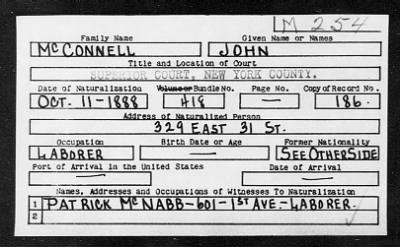 LM 254
Family Name Given Name or Names
MCCONNELL JOHN
Title and Location of Court
SUPERIOR COURT, NEW YORK COUNTY.
Date of Naturalization Volume or Bundle No. Page No. Copy of Record No.
OCT. 11-1888 418 — 186
Address of Naturalized Person
329 EAST 31 ST.
Occupation Birth Date or Age Former Nationality
LABORER — SEE OTHER SIDE
Port of Arrival in the United States Date of Arrival
— —
Names, Addresses and Occupations of Witnesses To Naturalization
1 PATRICK MCNABB-601-1ST AVE-LABORER.
2